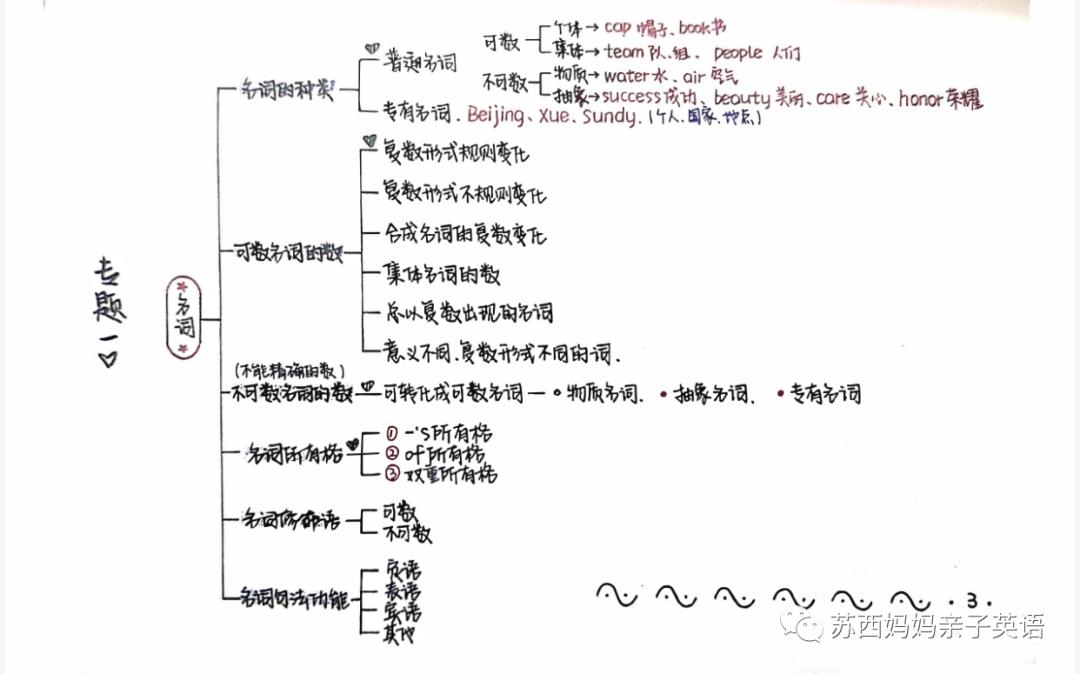 专题一
名词
名词的种类
普通名词
可数
个体→ cap 帽子、book书
集体→ team 队.组、people 人们
不可数
物质→ water 水、air 空气
抽象→success 成功、beauty 美丽、care 关心、honor 荣耀
专有名词. Beijing、Xue、Sundy. (个人.国家.地点)
可数名词的数
复数形式规则变化
复数形式不规则变化
合成名词的复数变化
集体名词的数
总以复数出现的名词
意义不同、复数形式不同的词.
(不能精确的数)
不可数名词的数
可转化成可数名词 — •物质名词. •抽象名词、 •专有名词
名词所有格
① -'s所有格
② of所有格
③ 双重所有格
名词修饰语
可数
不可数
名词句法功能
定语
表语
宾语
其他
.3.
苏西妈妈亲子英语